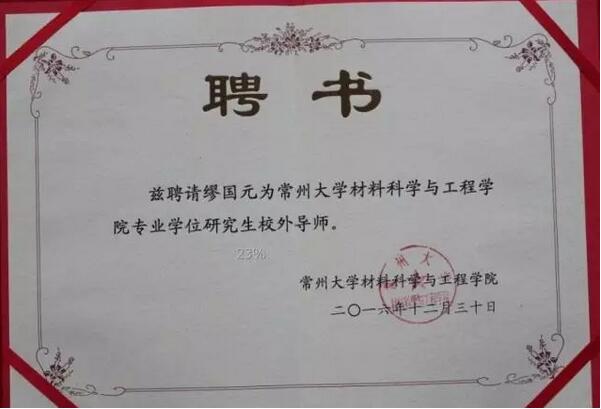 聘书
兹聘请缪国元为常州大学材料科学与工程学
院专业学位研究生校外导师。
23%
常州大学材料科学与工程学院
二〇一六年十二月三十日